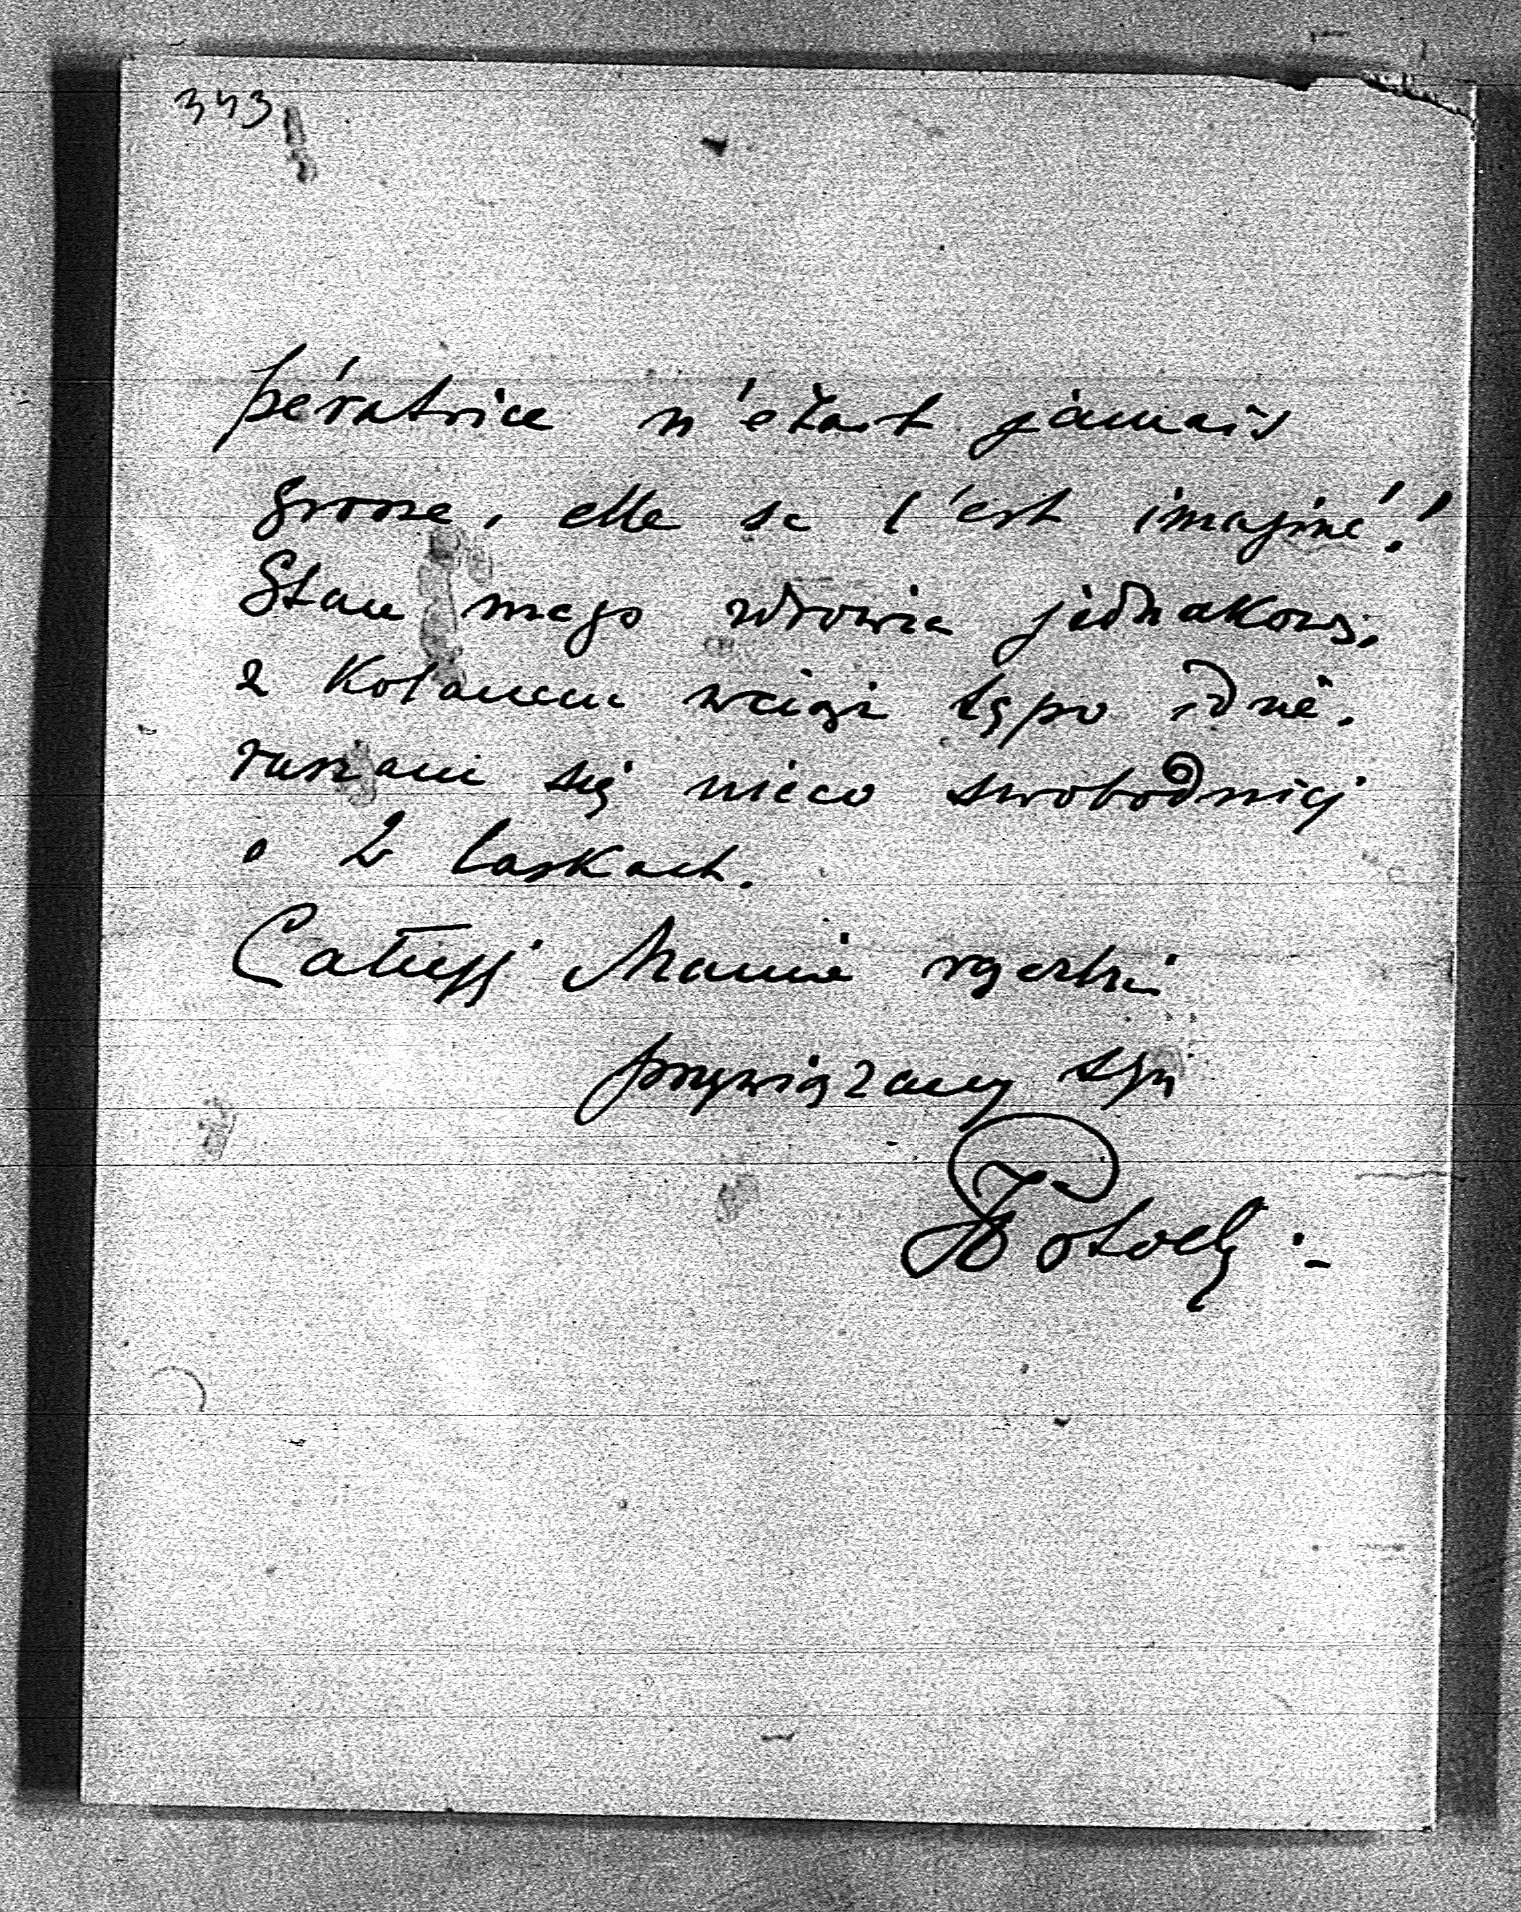 343
pératrice n'était jamais
grosse, elle se l'est imaginé!!
Stan mego zdrowia jednakowy,
z kolanem wciąż tępo idzie.
ruszam się nieco swobodniej
o 2 laskach.
Całuję Mamie rączki
przywiązany syn
Potocki